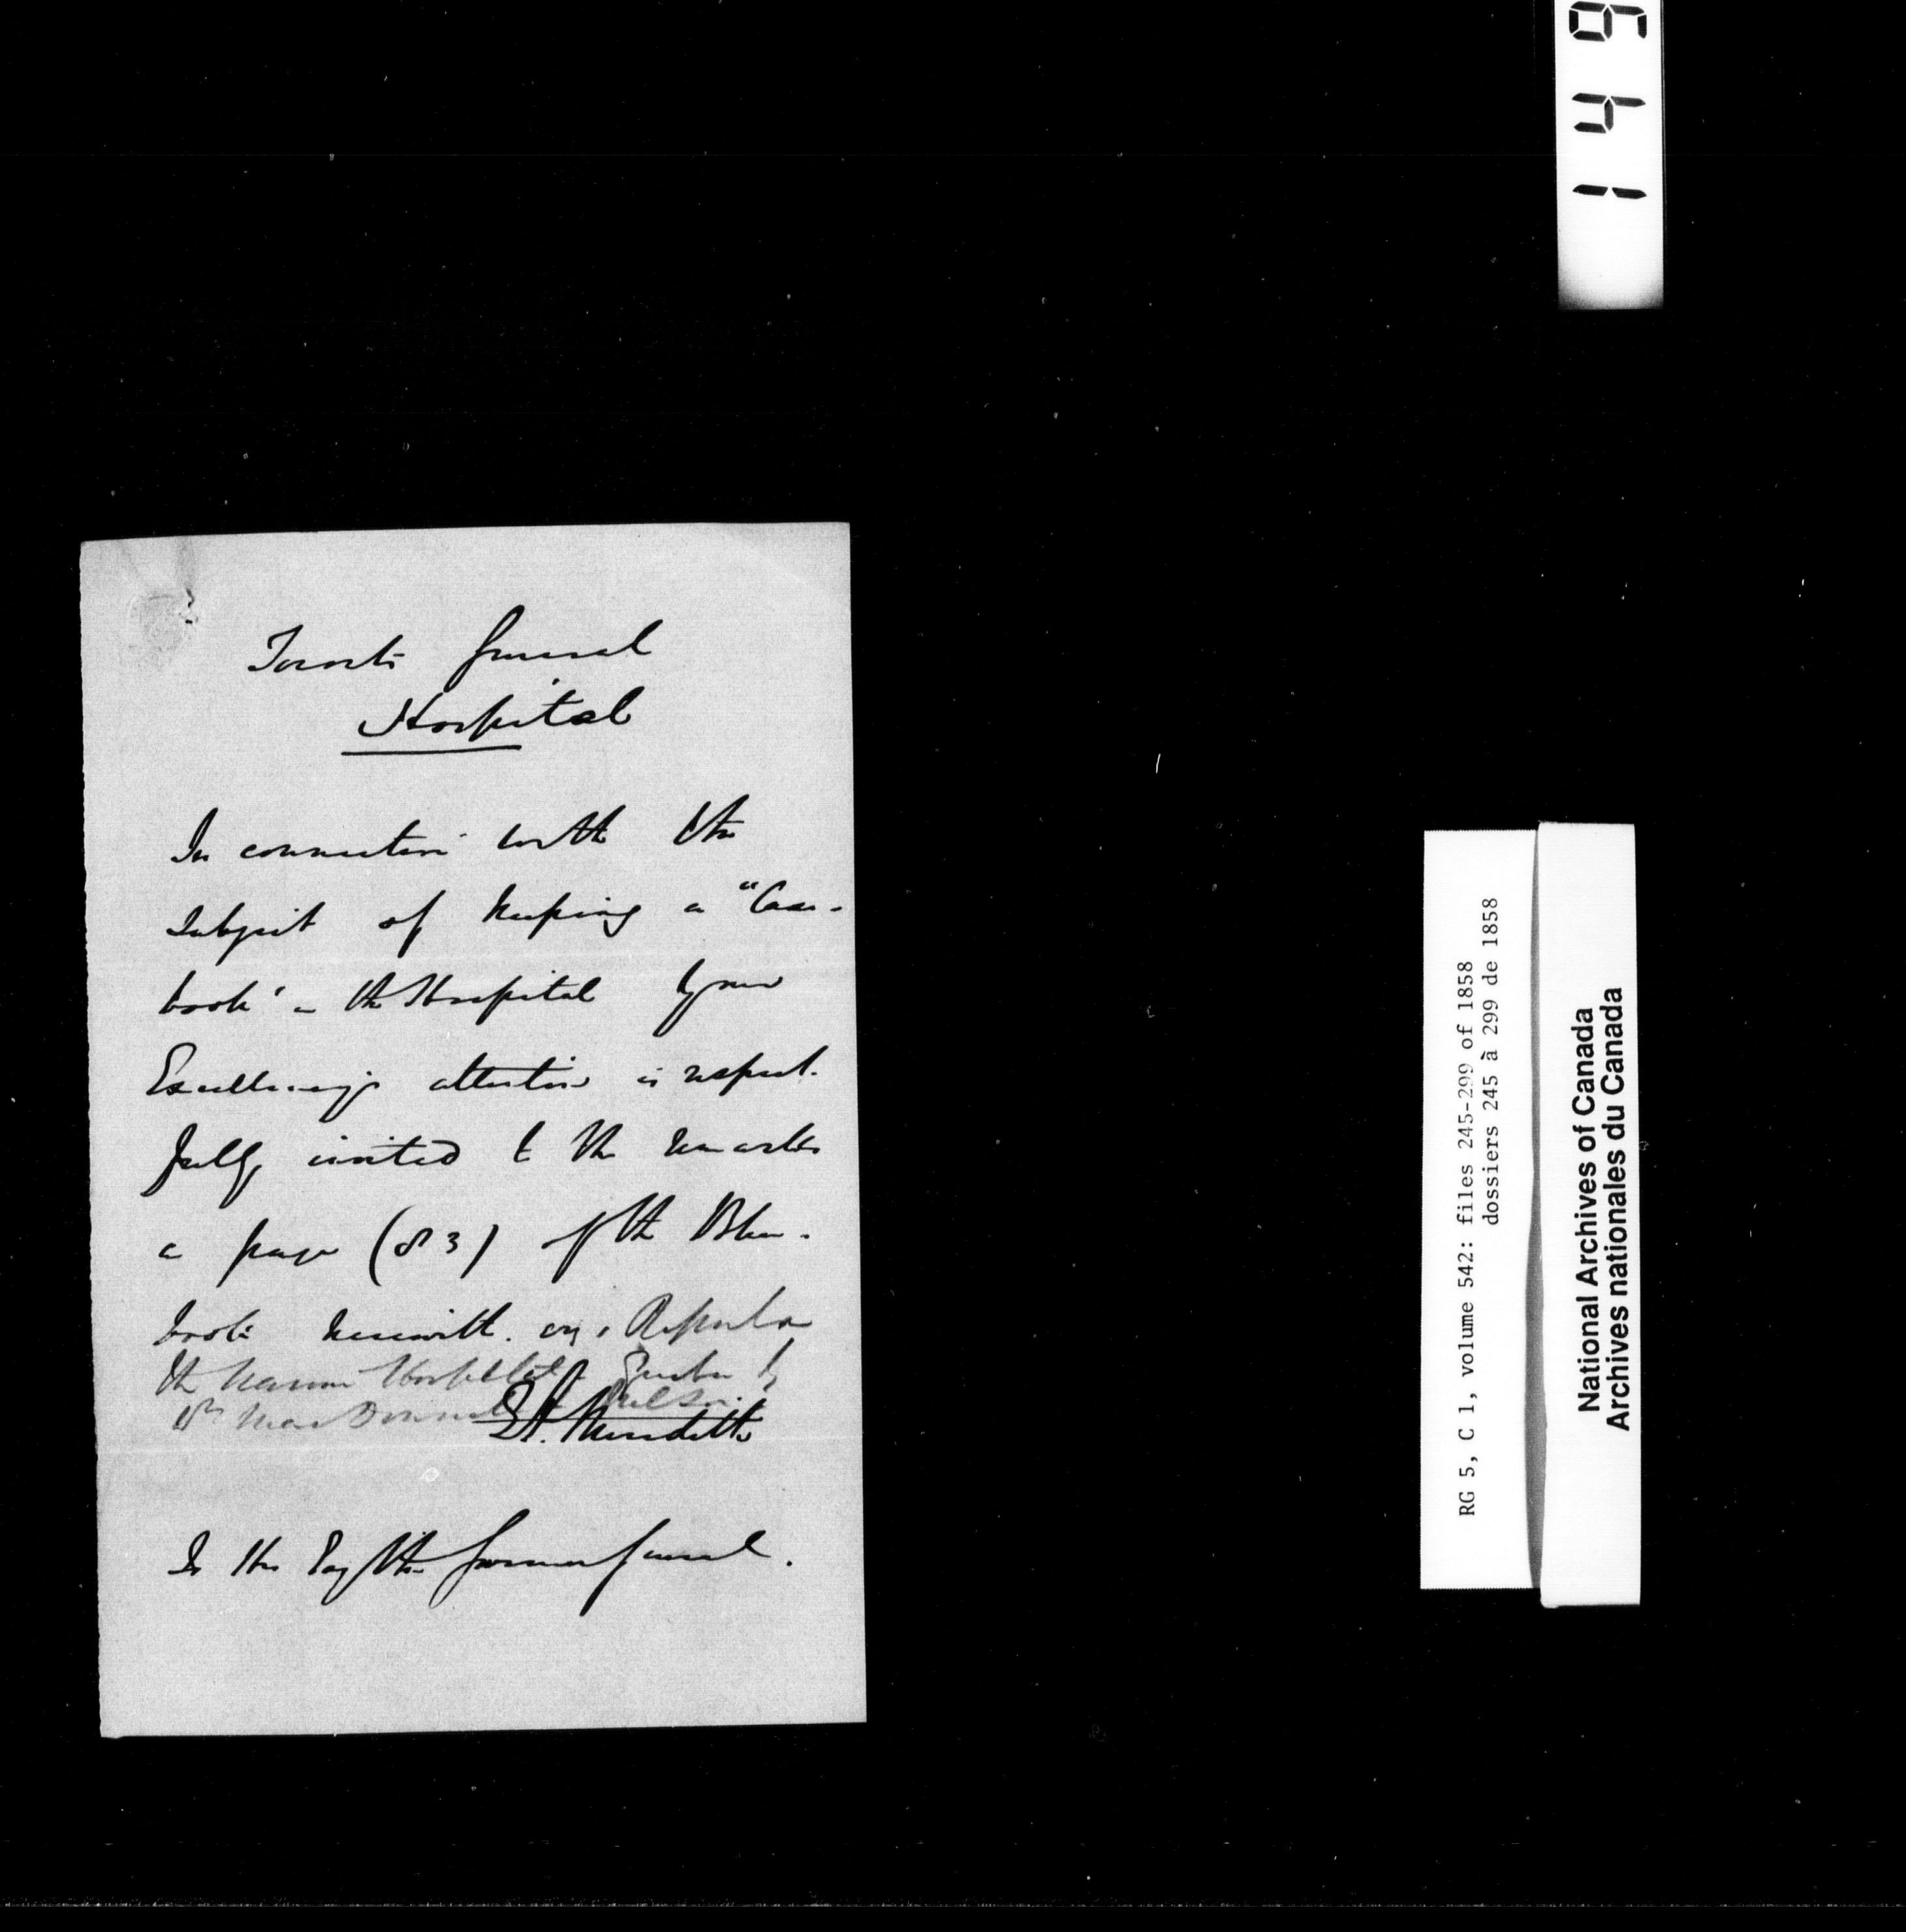 Toronto General
Hospital
In connection with the
subject of keeping a "Case-
book" in the Hospital Your
Excellency's attention is respect-
fully invited to the remarks
on page (83) of the Blue-
book herewith. Report on
the Marine Hospital Quebec by
Drs MacDonnell Nelson
E. A. Meredith
To His Excy the Governor General.
149
RG 5, C 1, volume 542: files 245-299 of 1858
dossiers 245 à 299 de 1858
National Archives of Canada
Archives nationales du Canada